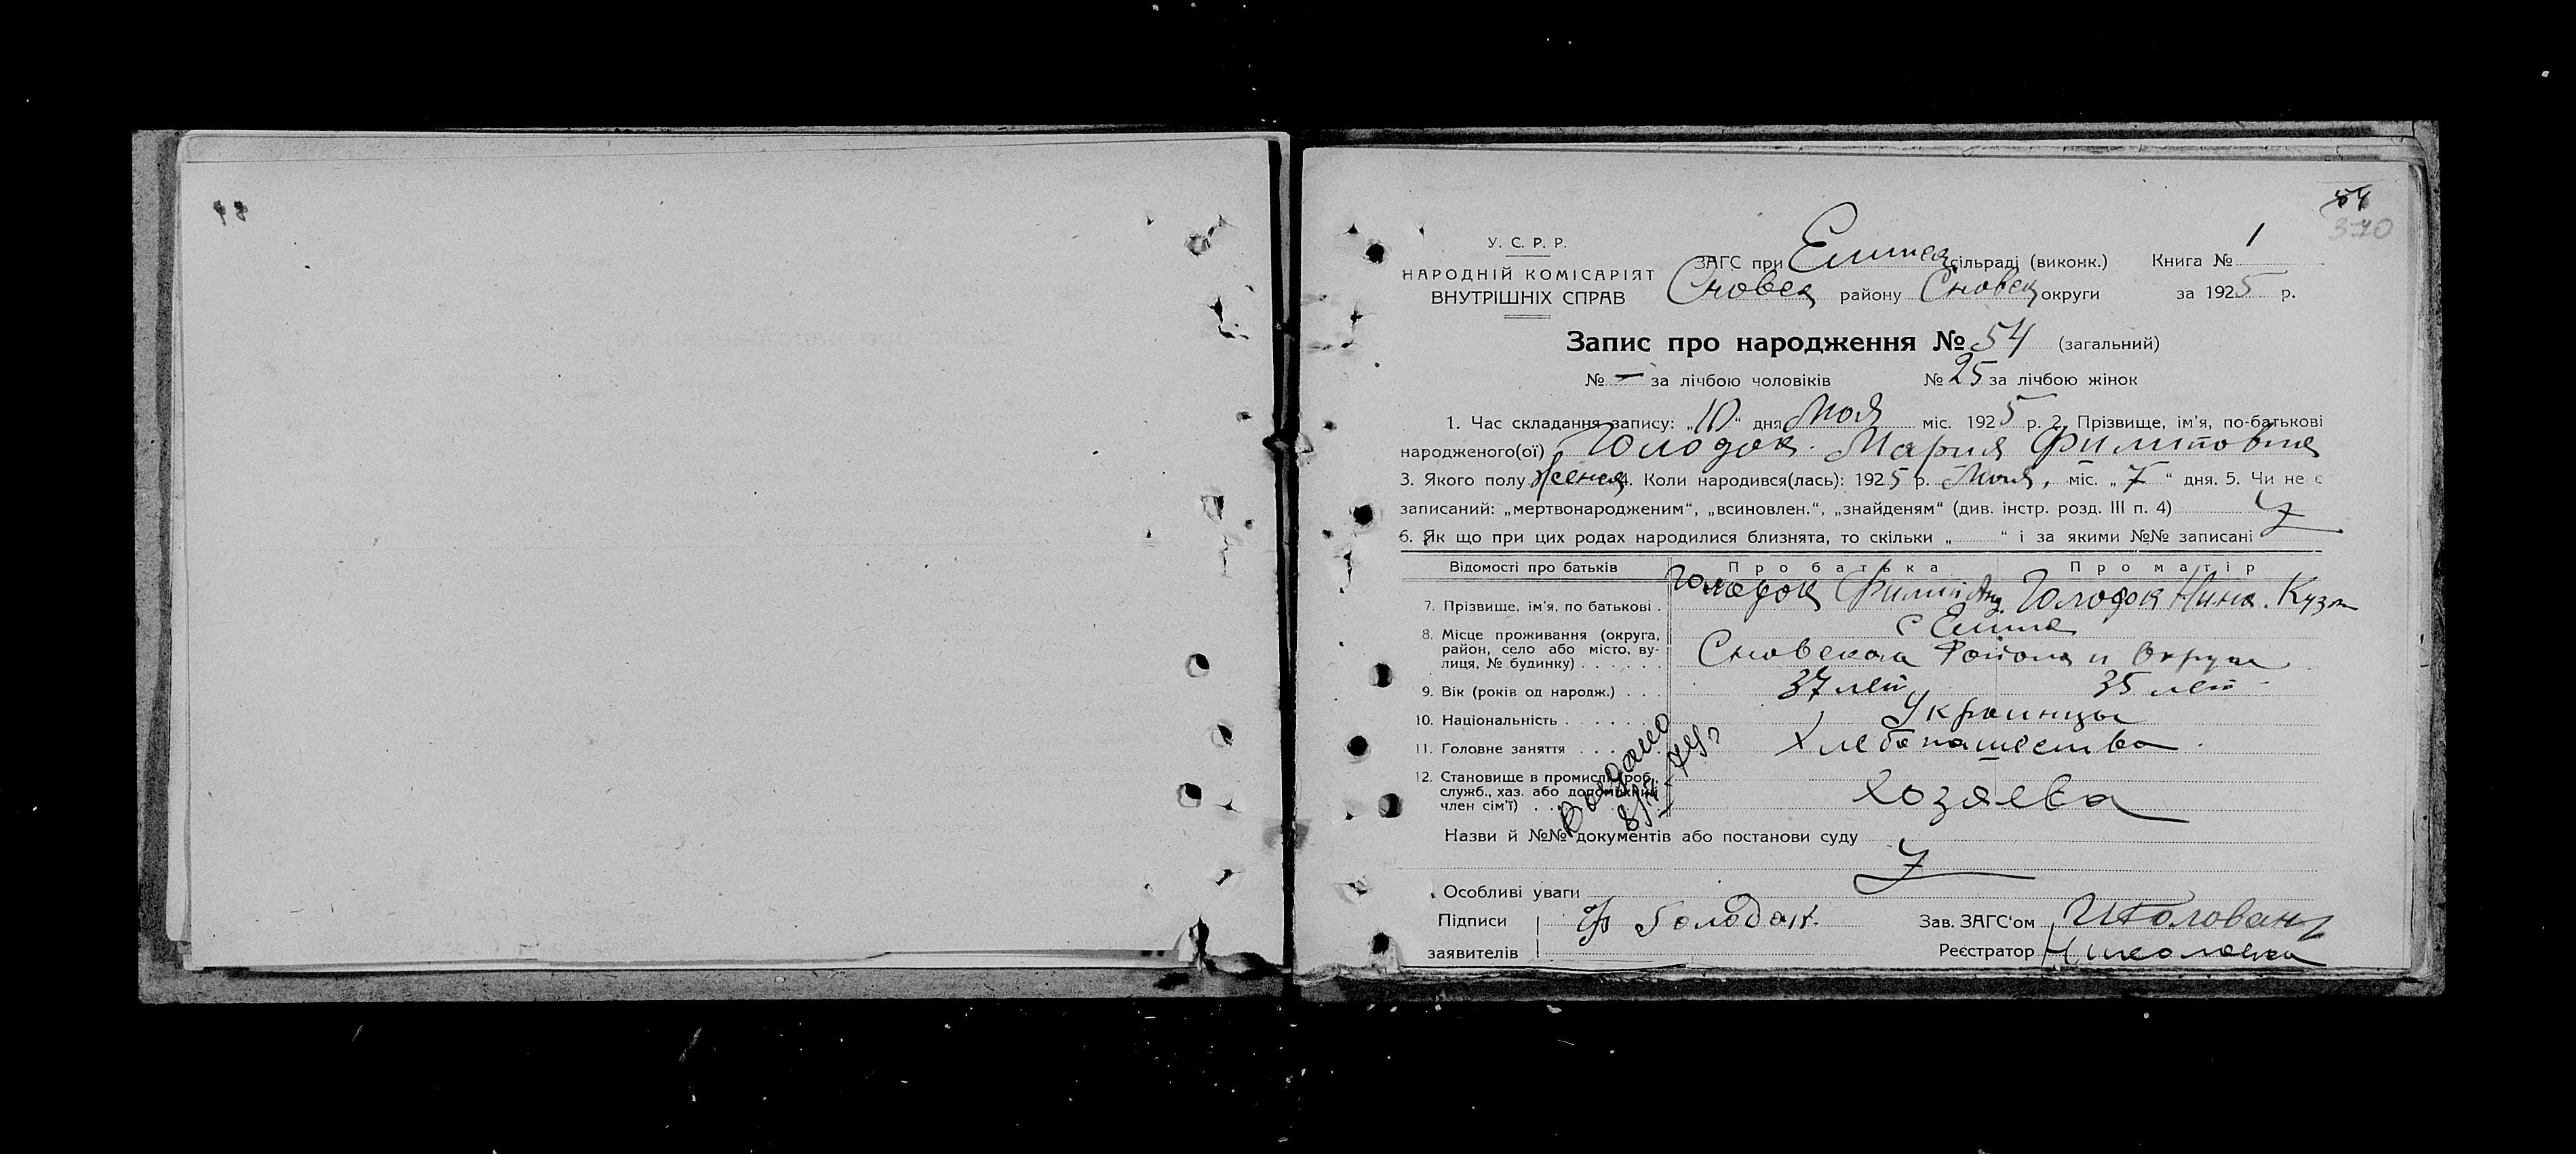 54
370
У. С. Р. Р.
НАРОДНІЙ КОМІСАРІЯТ
ВНУТРІШНІХ СПРАВ
ЗАГС при Елинск сільраді (виконк.) Книга № 1
Сновск району Сновск округи за 1925 р.
Запис про народження № 54 (загальний)
№ — за лічбою чоловіків № 25 за лічбою жінок
1. Час складання запису: „10“ дня Мая міс. 1925 р. 2. Прізвище, ім'я, по-батькові
народженого(ої) Голодок Мария Филиповна
3. Якого полу женск 4. Коли народився(лась): 1925 р. Мая, міс. „7“ дня. 5. Чи не є
записаний: „мертвонародженим“, „всиновлен.“, „знайденям“ (див. інстр. розд. III п. 4)
6. Як що при цих родах народилися близнята, то скільки „ “ і за якими №№ записані
Відомості про батьків Про батька Про матір
7. Прізвище, ім'я, по батькові . Голодок Филип Анд. Голодок Нина Кузм
8. Місце проживання (округа, район, село або місто, вулиця, № будинку) . . . . . . с Елина
Сновскага Района и Округа
9. Вік (років од народж.) . . . 37 лет 35 лет
10. Національність . . . . . . . Украинцы
11. Головне заняття . . . . . . Хлебопашества
12. Становище в промислі (роб., служб., хаз. або допоміжний член сім'ї) . . . хозяева
Выдано
Назви й №№ документів або постанови суду
Особливі уваги
Підписи Ф Голодок Зав. ЗАГС'ом
заявителів Реєстратор